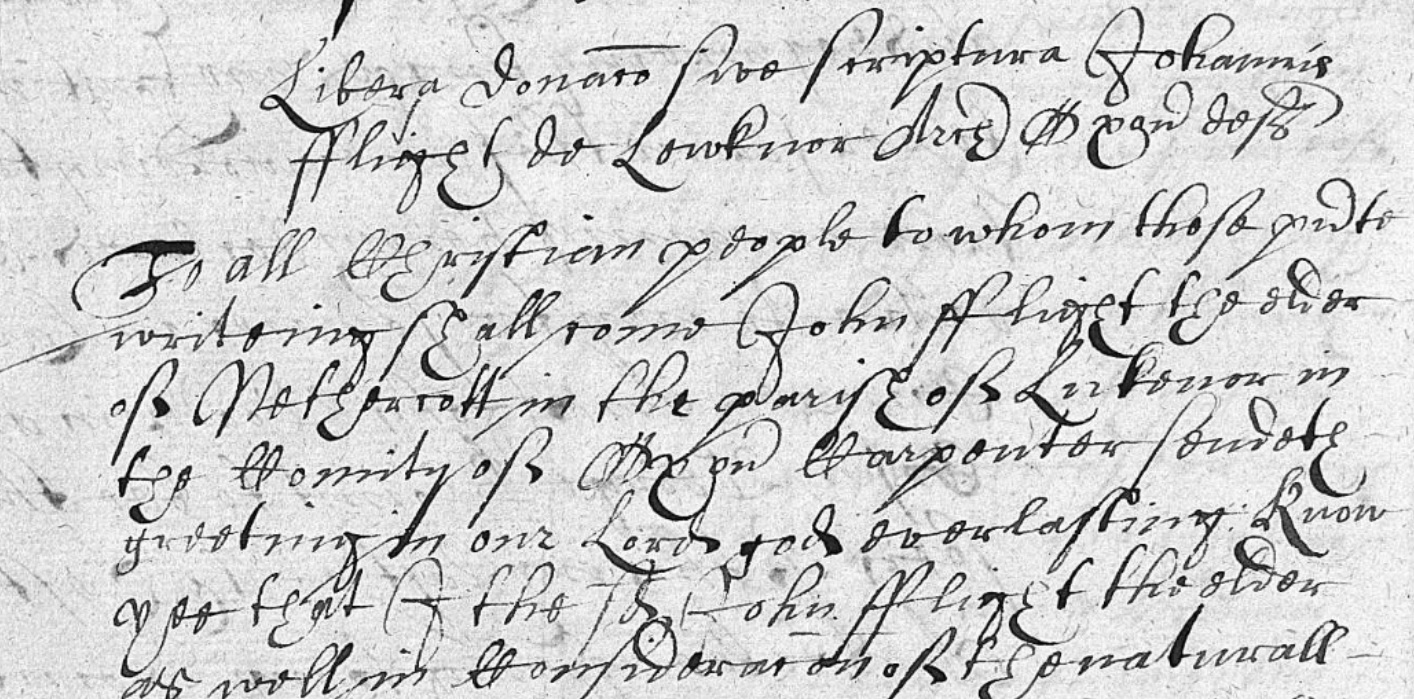 Libera donac̄o sive scriptura Johannis
fflight de Lewknor Arch Oxon deff
To all Christian people to whom these pñte
writeing shall come John fflight the elder
of Nethercott in the parish of Lukenor in
the County of Oxon Carpenter sendeth
greeting in our Lord god everlasting. Know
yee that I the sd John fflight the elder
as well in Consideracōn of the naturall